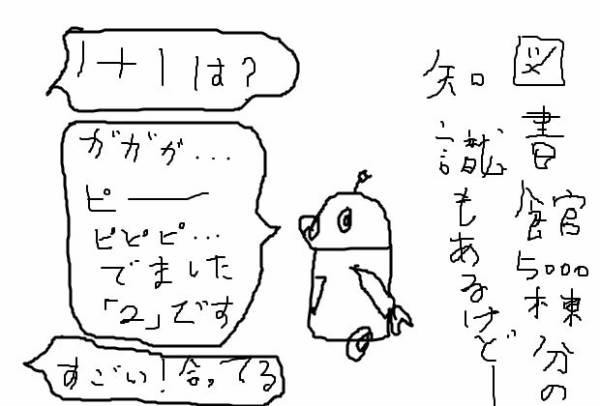 図書館5000棟分の
知識もあるけどー
1+1は?
ガガガ…
ピー
ピピピ…
でました
「2」です
すごい!合ってる